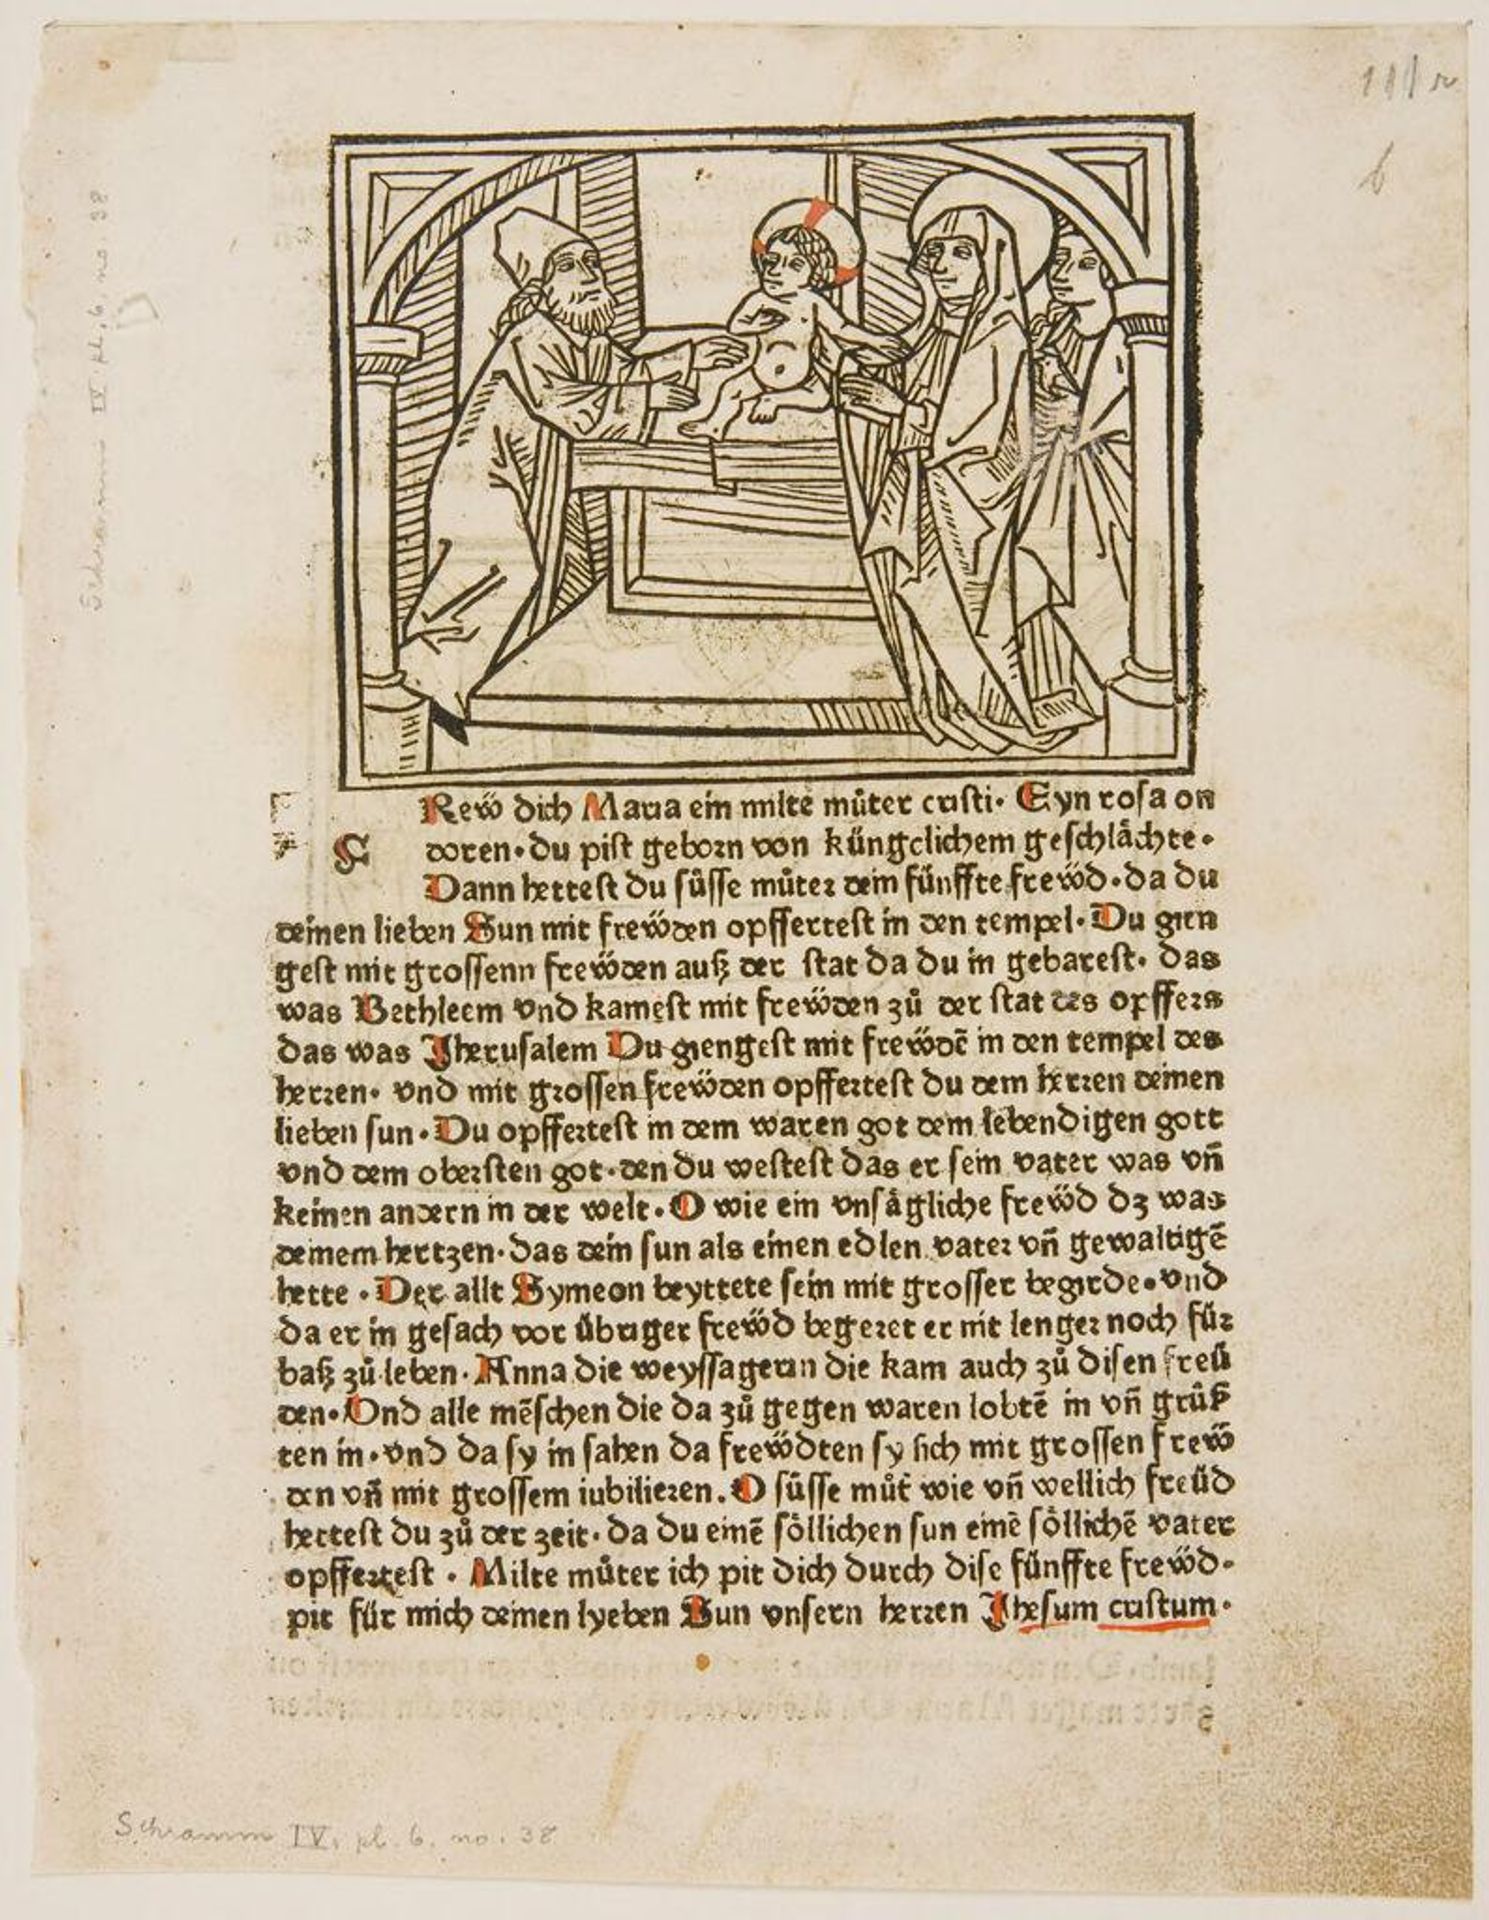 111r
6
Rew̋ dich Maria ein milte můter cristi· Eyn rosa on
doren·du pist geborn von küngclichem geschlächte·
Dann hettest du süsse můter dein fünffte frew̋d·da du
deinen lieben Sun mit frew̋den opffertest in den tempel·Du gien
gest mit grossenn frew̋den auß der stat da du in gebarest· das
was Bethleem vnd kamest mit frew̋den zů der stat des opffers
das was Jherusalem Du giengest mit frew̋dē in den tempel des
herren· vnd mit grossen frew̋den opffertest du dem herren deinen
lieben sun·Du opffertest in dem waren got dem lebendigen gott
vnd dem obersten got·den du westest das er sein vater was vn̄
keinen andern in der welt·O wie ein vnsägliche frew̋d dz was
deinem hertzen·das dein sun als einen edlen vater vn̄ gewaltigē
hette ·Der allt Symeon beyttete sein mit grosser begirde·vnd
da er in gesach vor übriger frew̋d begeret er nit lenger noch für
baß zů leben·Anna die weyssagerin die kam auch zů disen freü
den·Vnd alle mēschen die da zů gegen waren lobtē in vn̄ grůß
ten in·vnd da sy in sahen da frew̋dten sy sich mit grossen frew̋
den vn̄ mit grossem iubilieren.O süsse můt̄ wie vn̄ wellich freüd
hettest du zů der zeit·da du einē söllichen sun einē söllichē vater
opffertest · Milte můter ich pit dich durch dise fünffte frew̋d·
pit für mich deinen lyeben Sun vnsern herren Jhesum cristum·
Schramm IV, pl. 6, no. 38
Schramm IV. pl. 6, no 38